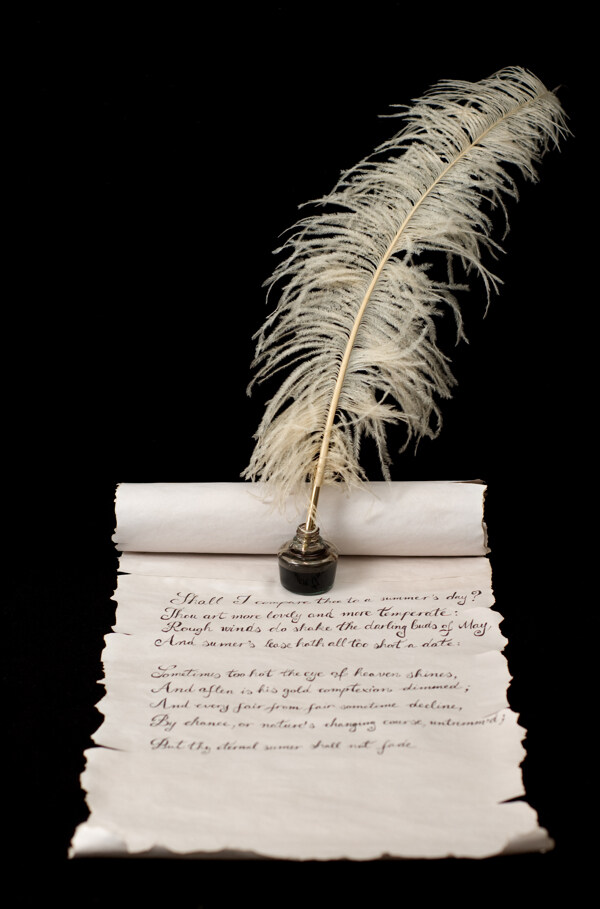 Shall I compare thee to a summer's day?
Thou art more lovely and more temperate:
Rough winds do shake the darling buds of May,
And sumer's lease hath all too short a date:
Sometimes too hot the eye of heaven shines,
And often is his gold complexion dimmed;
And every fair from fair sometime decline,
By chance, or nature's changing course, untrimmed;
But thy eternal sumer shall not fade